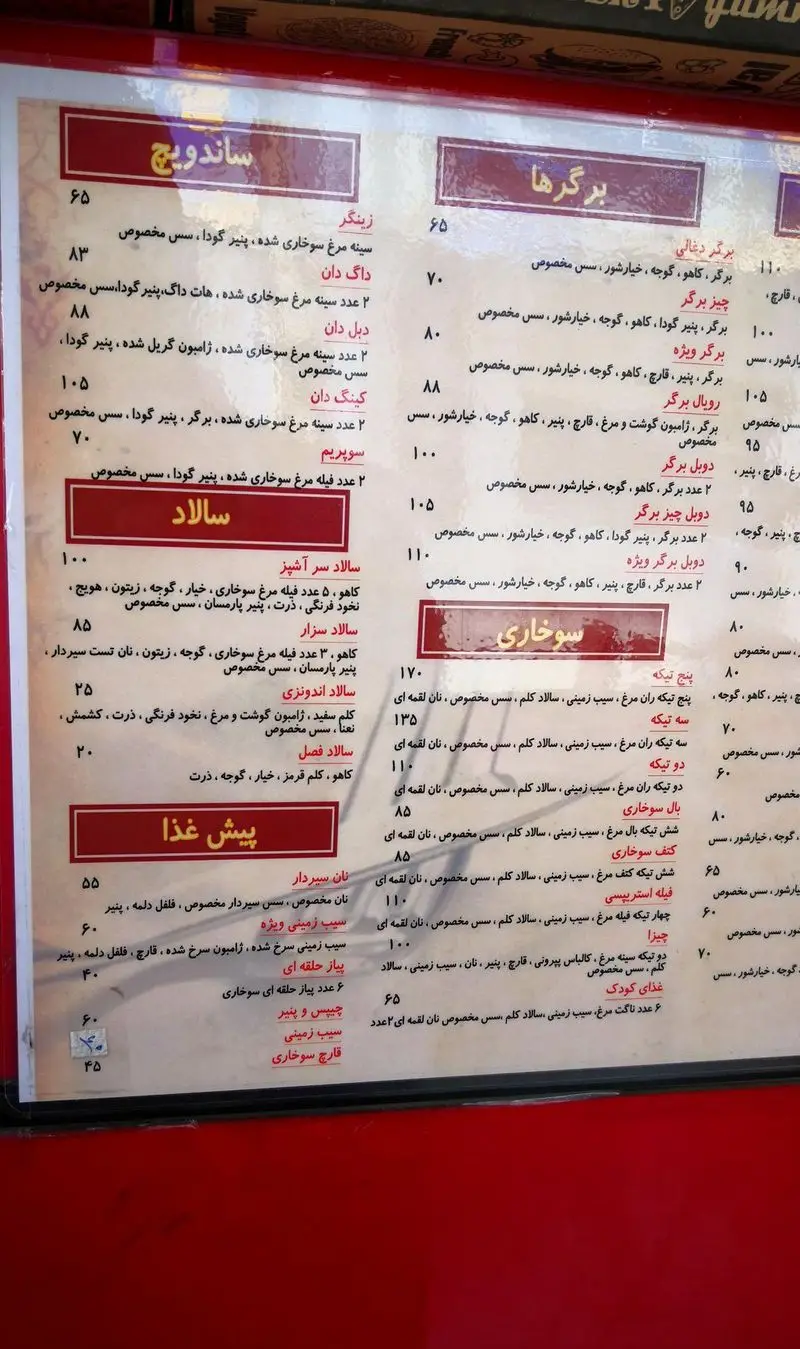 برگرها
برگر ذغالی ۶۵
برگر ، کاهو ، گوجه ، خیارشور ، سس مخصوص
چیز برگر ۷۰
برگر ، پنیر گودا ، کاهو ، گوجه ، خیارشور ، سس مخصوص
برگر ویژه ۸۰
برگر ، پنیر ، قارچ ، کاهو ، گوجه ، خیارشور ، سس مخصوص
رویال برگر ۸۸
برگر ، ژامبون گوشت و مرغ ، قارچ ، پنیر ، کاهو ، گوجه ، خیارشور ، سس
مخصوص
دوبل برگر ۱۰۰
۲ عدد برگر ، کاهو ، گوجه ، خیارشور ، سس مخصوص
دوبل چیز برگر ۱۰۵
۲ عدد برگر ، پنیر گودا ، کاهو ، گوجه ، خیارشور ، سس مخصوص
دوبل برگر ویژه ۱۱۰
۲ عدد برگر ، قارچ ، پنیر ، کاهو ، گوجه ، خیارشور ، سس مخصوص
سوخاری
پنج تیکه ۱۷۰
پنج تیکه ران مرغ ، سیب زمینی ، سالاد کلم ، سس مخصوص ، نان لقمه ای
سه تیکه ۱۳۵
سه تیکه ران مرغ ، سیب زمینی ، سالاد کلم ، سس مخصوص ، نان لقمه ای
دو تیکه ۱۱۰
دو تیکه ران مرغ ، سیب زمینی ، سالاد کلم ، سس مخصوص ، نان لقمه ای
بال سوخاری ۸۵
شش تیکه بال مرغ ، سیب زمینی ، سالاد کلم ، سس مخصوص ، نان لقمه ای
کتف سوخاری ۸۵
شش تیکه کتف مرغ ، سیب زمینی ، سالاد کلم ، سس مخصوص ، نان لقمه ای
فیله استریپسی ۱۱۰
چهار تیکه فیله مرغ ، سیب زمینی ، سالاد کلم ، سس مخصوص ، نان لقمه ای
چیزا ۱۰۰
دو تیکه سینه مرغ ، کالباس پپرونی ، قارچ ، پنیر ، نان ، سیب زمینی ، سالاد
کلم ، سس مخصوص
غذای کودک ۶۵
۶ عدد ناگت مرغ، سیب زمینی ،سالاد کلم ،سس مخصوص نان لقمه ای۲عدد
ساندویچ
زینگر ۶۵
سینه مرغ سوخاری شده ، پنیر گودا ، سس مخصوص
داگ دان ۸۳
۲ عدد سینه مرغ سوخاری شده ، هات داگ،پنیر گودا،سس مخصوص
دبل دان ۸۸
۲ عدد سینه مرغ سوخاری شده ، ژامبون گریل شده ، پنیر گودا ،
سس مخصوص
کینگ دان ۱۰۵
۲ عدد سینه مرغ سوخاری شده ، برگر ، پنیر گودا ، سس مخصوص
سوپریم ۷۰
۲ عدد فیله مرغ سوخاری شده ، پنیر گودا ، سس مخصوص
سالاد
سالاد سر آشپز ۱۰۰
کاهو ، ۵ عدد فیله مرغ سوخاری ، خیار ، گوجه ، زیتون ، هویج ،
نخود فرنگی ، ذرت ، پنیر پارمسان ، سس مخصوص
سالاد سزار ۸۵
کاهو ، ۳ عدد فیله مرغ سوخاری ، گوجه ، زیتون ، نان تست سیردار ،
پنیر پارمسان ، سس مخصوص
سالاد اندونزی ۲۵
کلم سفید ، ژامبون گوشت و مرغ ، نخود فرنگی ، ذرت ، کشمش ،
نعنا ، سس مخصوص
سالاد فصل ۲۰
کاهو ، کلم قرمز ، خیار ، گوجه ، ذرت
پیش غذا
نان سیردار ۵۵
نان مخصوص ، سس سیردار مخصوص ، فلفل دلمه ، پنیر
سیب زمینی ویژه ۶۰
سیب زمینی سرخ شده ، ژامبون سرخ شده ، قارچ ، فلفل دلمه ، پنیر
پیاز حلقه ای ۴۰
۶ عدد پیاز حلقه ای سوخاری
چیپس و پنیر ۶۰
سیب زمینی ۴۰
قارچ سوخاری ۴۵
۱۱۰
، قارچ ،
۱۰۰
۱۰۵
مخصوص
۹۵
، قارچ ، پنیر ،
۹۵
، پنیر ، گوجه ،
۹۰
، خیارشور ، سس
۸۰
، سس مخصوص
۸۰
، پنیر ، کاهو ، گوجه ،
۷۰
، سس مخصوص
۶۰
مخصوص
۸۰
، گوجه ، خیارشور ، سس
۶۵
، سس مخصوص
۶۰
، سس مخصوص
۷۰
، گوجه ، خیارشور ، سس